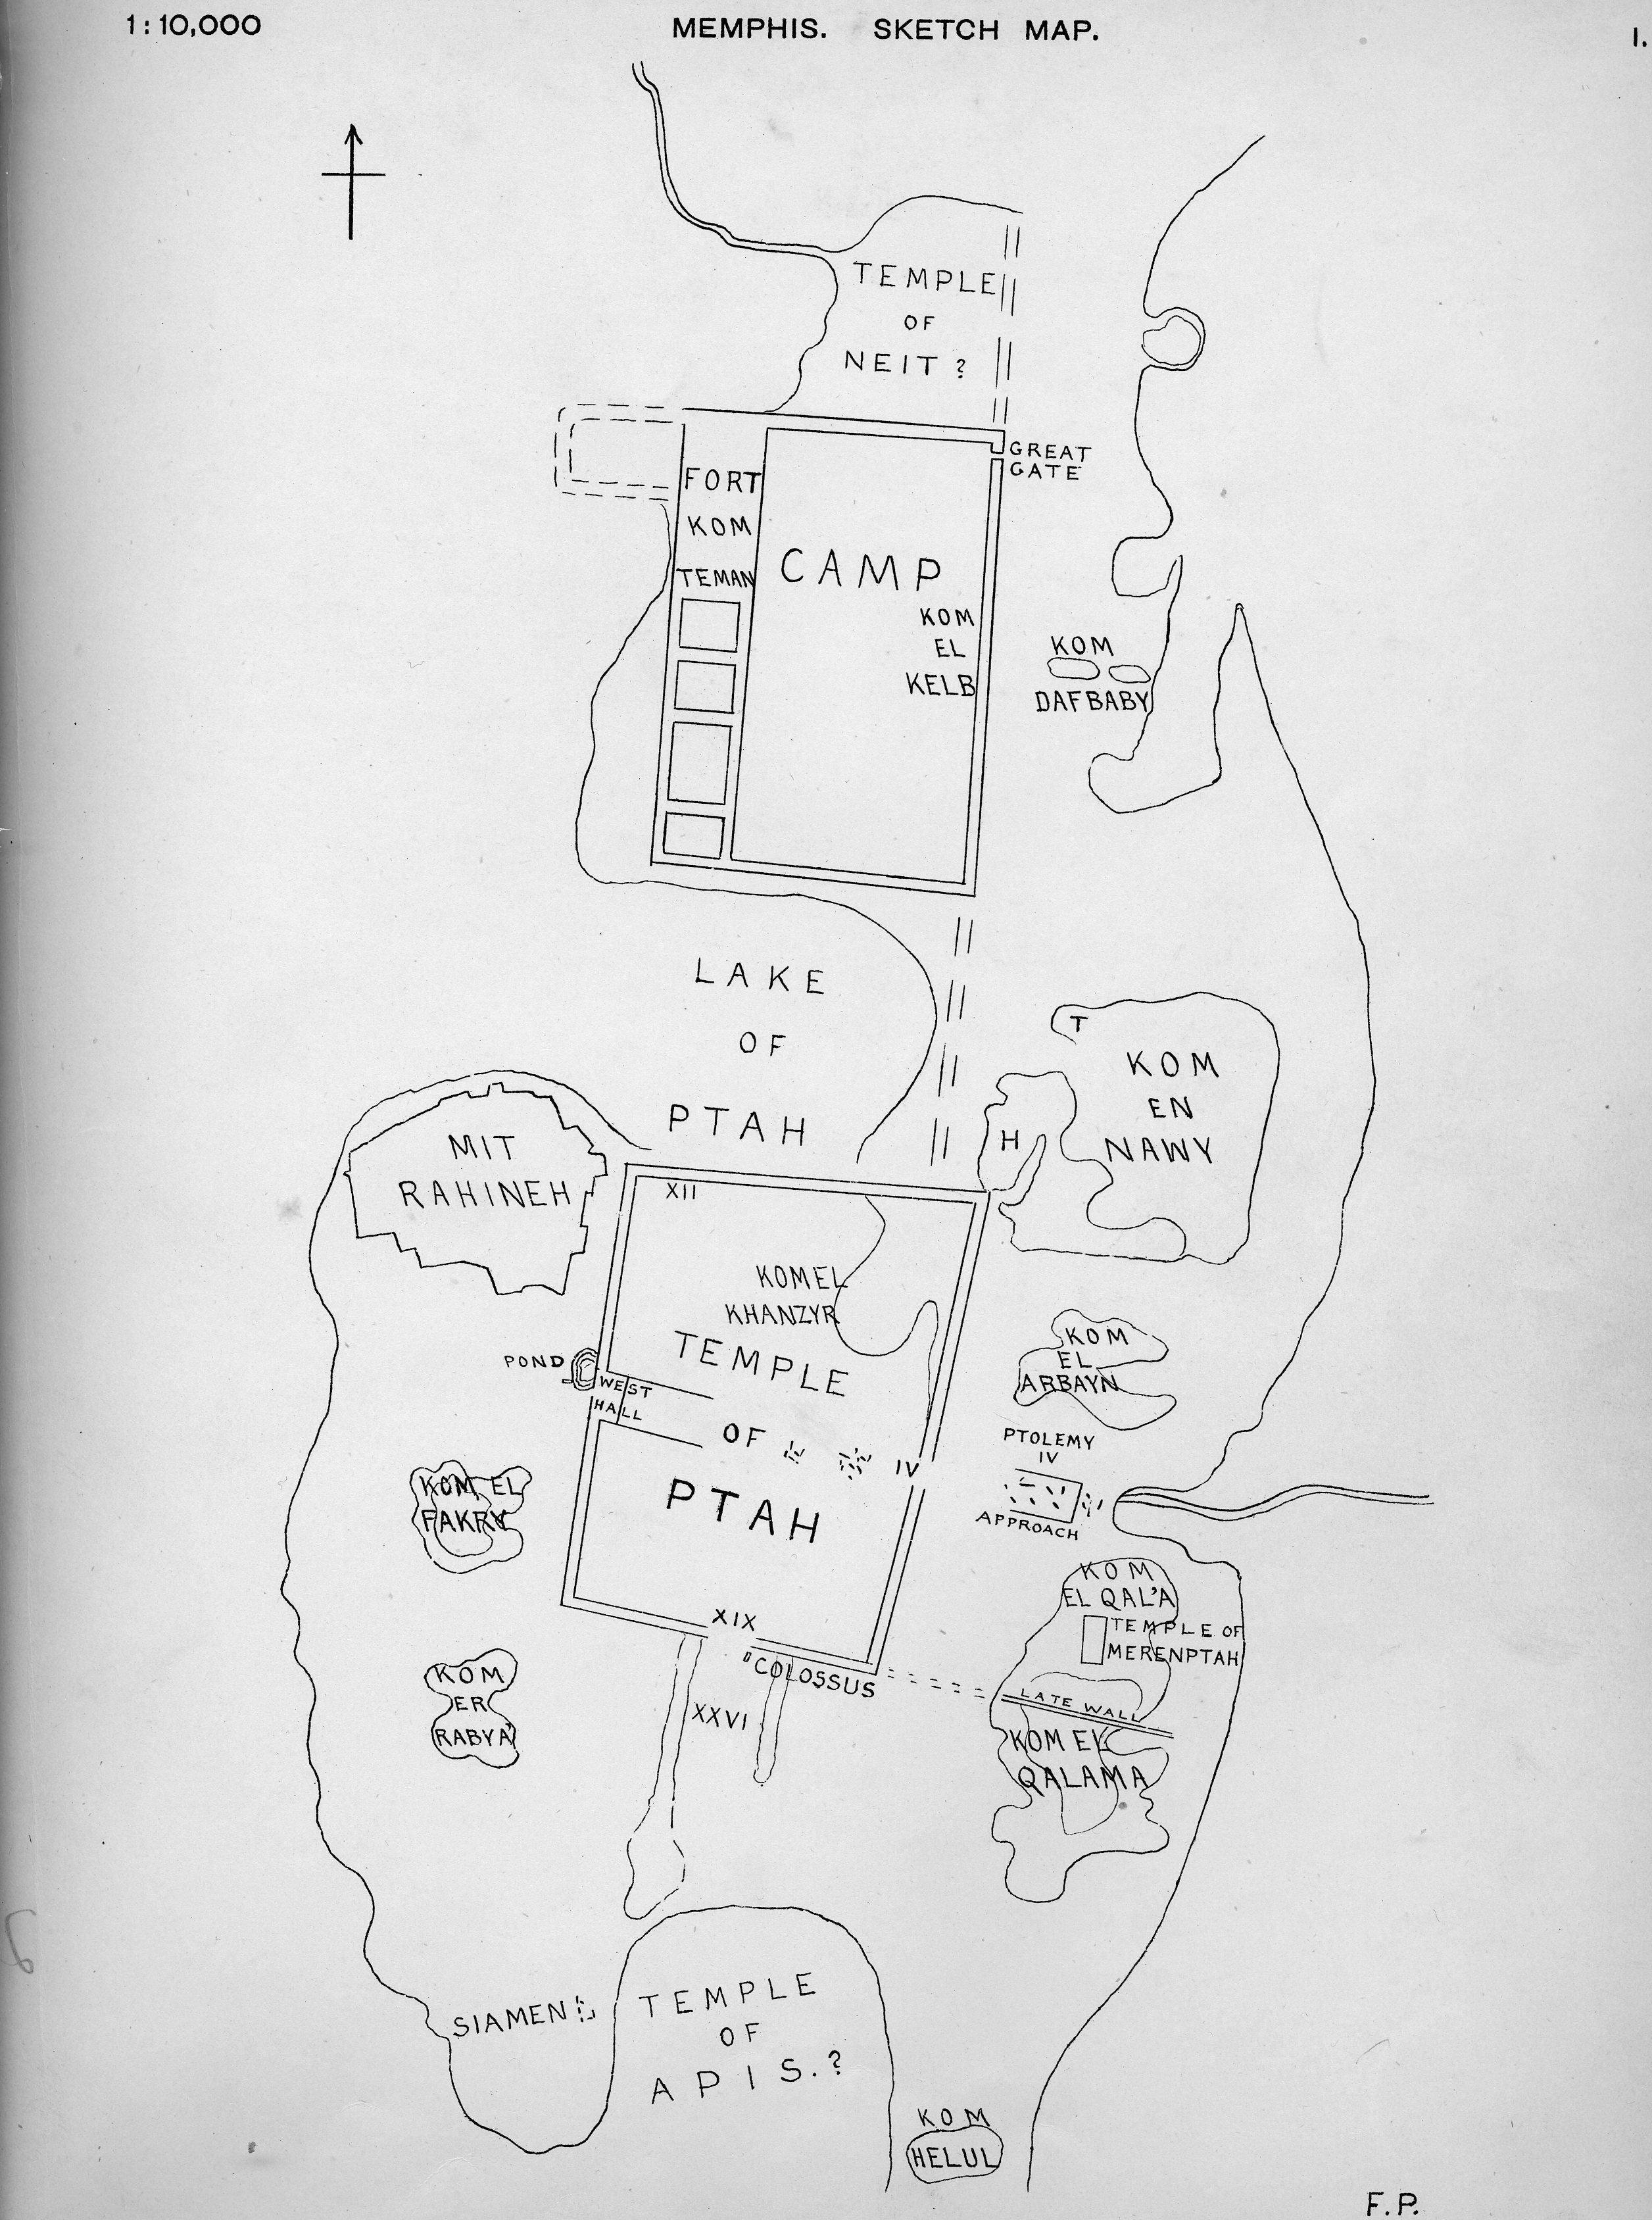 1:10,000
MEMPHIS. SKETCH MAP.
1.
TEMPLE
OF
NEIT ?
GREAT
GATE
FORT
KOM
TEMAN
CAMP
KOM
EL
KELB
KOM
DAFBABY
LAKE
OF
PTAH
T
KOM
EN
NAWY
H
MIT
RAHINEH
XII
KOM EL
KHANZYR
TEMPLE
OF
PTAH
POND
WEST
HALL
IV
KOM
EL
ARBAYN
PTOLEMY
IV
APPROACH
KOM EL
FAKRY
KOM
EL QAL'A
TEMPLE OF
MERENPTAH
XIX
COLOSSUS
LATE WALL
KOM
ER
RABYA'
XXVI
KOM EL
QALAMA
SIAMEN
TEMPLE
OF
APIS.?
KOM
HELUL
F.P.